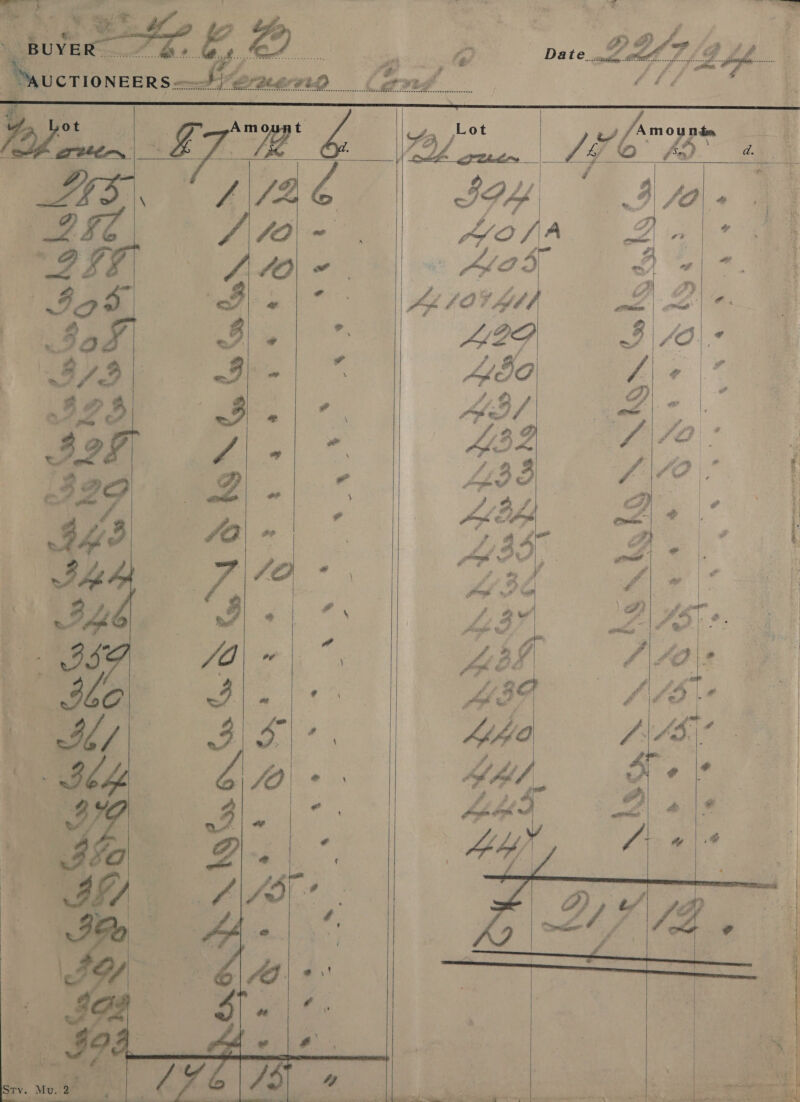 BUYER
Date 22/7/24
AUCTIONEERS
Lot Amount d.
Bt over £87 12 6
285 1 12 6
286 1 10 -
288 1 10 -
305 3 - -
308 3 - -
313 3 - -
323 3 - -
328 1 - -
329 2 - -
343 10 - -
344 7 10 -
346 3 - -
359 10 - -
360 3 - -
361 3 5 -
364 6 10 -
379 3 - -
380 2 - -
381 1 15 -
390 4 - -
391 6 10 -
392 5 - -
393 4 - -
176 15 -
Lot Amount £ s. d.
Bt over 176 15
394 3 10 -
401A 2 - -
405 3 - -
410 & 411 2 2 -
429 3 10 -
430 1 - -
431 2 - -
432 1 10 -
433 1 10 -
434 2 - -
435 2 - -
436 1 - -
437 2 15 -
438 1 10 -
439 1 15 -
440 1 15 -
441 5 - -
445 2 - -
447 1 - -
£ 217 12 -
Stv. Mu. 2